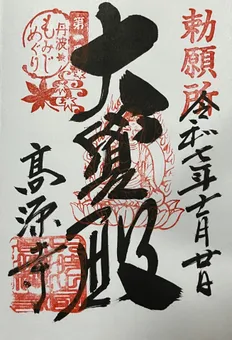 勅願所
令和七年十一月廿日
大覺殿
第一番
丹波
もみじ
めぐり
高源寺